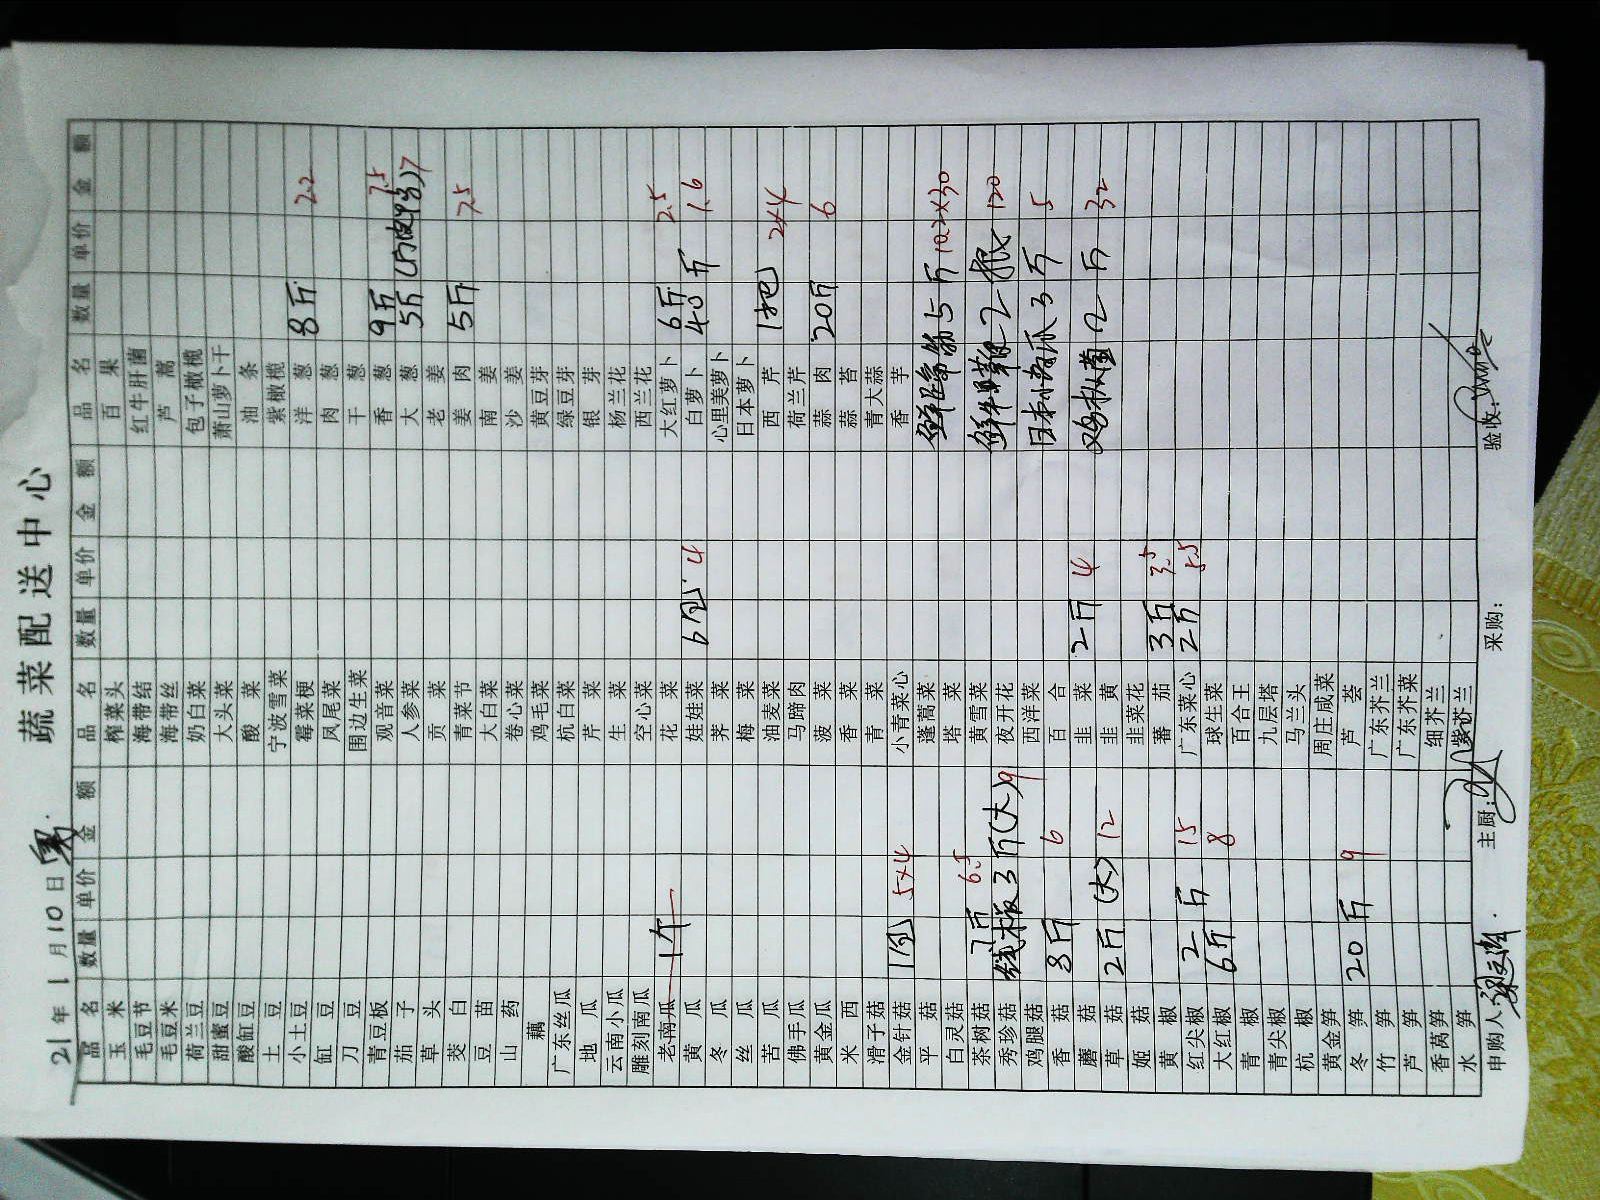 蔬菜配送中心
21年1月10日
品名 数量 单价 金额 品名 数量 单价 金额 品名 数量 单价 金额
玉米 榨菜头 百果
毛豆节 海带结 红牛肝菌
毛豆米 海带丝 芦蒿
荷兰豆 奶白菜 包子橄榄
甜蜜豆 大头菜 萧山萝卜干
酸缸豆 酸菜 油条
土豆 宁波雪菜 紫橄榄
小土豆 霉菜梗 洋葱 8斤 2.2
缸豆 凤尾菜 肉葱
刀豆 围边生菜 干葱
青豆板 观音菜 香葱 9斤 7.5
茄子 人参菜 大葱 5斤
草头 贡菜 老姜
茭白 青菜节 姜肉 5斤 7.5
豆苗 大白菜 南姜
山药 卷心菜 沙姜
藕 鸡毛菜 黄豆芽
广东丝瓜 杭白菜 绿豆芽
地瓜 芹菜 银芽
云南小瓜 生菜 杨兰花
雕刻南瓜 空心菜 西兰花
老南瓜 1个 花菜 大红萝卜 6斤 2.5
黄瓜 娃娃菜 6包 4 白萝卜 40斤 1.6
冬瓜 荠菜 心里美萝卜
丝瓜 梅菜 日本萝卜
苦瓜 油麦菜 西芹 1把 2x4
佛手瓜 马蹄肉 荷兰芹
黄金瓜 菠菜 蒜肉 20斤 6
米西 香菜 蒜苔
滑子菇 青菜 青大蒜
金针菇 1包 5x4 小青菜心 香芋
平菇 蓬蒿菜 5斤 10.2x30
白灵菇 塔菜
茶树菇 7斤 6.5 黄雪菜 2 120
秀珍菇 3斤(大) 9 夜开花
鸡腿菇 西洋菜 日本南瓜 3斤 5
香菇 8斤 6 百合
蘑菇 韭菜 2斤 4 鸡枞菌 2斤 32
草菇 2斤(大) 12 韭黄
姬菇 韭菜花
黄椒 蕃茄 3斤 3.5
红尖椒 2斤 15 广东菜心 2斤 5.5
大红椒 6斤 8 球生菜
青椒 百合王
青尖椒 九层塔
杭椒 马兰头
黄金笋 周庄咸菜
冬笋 20斤 9 芦荟
竹笋 广东芥兰
芦笋 广东芥菜
香莴笋 细芥兰
水笋 紫芥兰
申购人: 主厨: 采购: 验收: